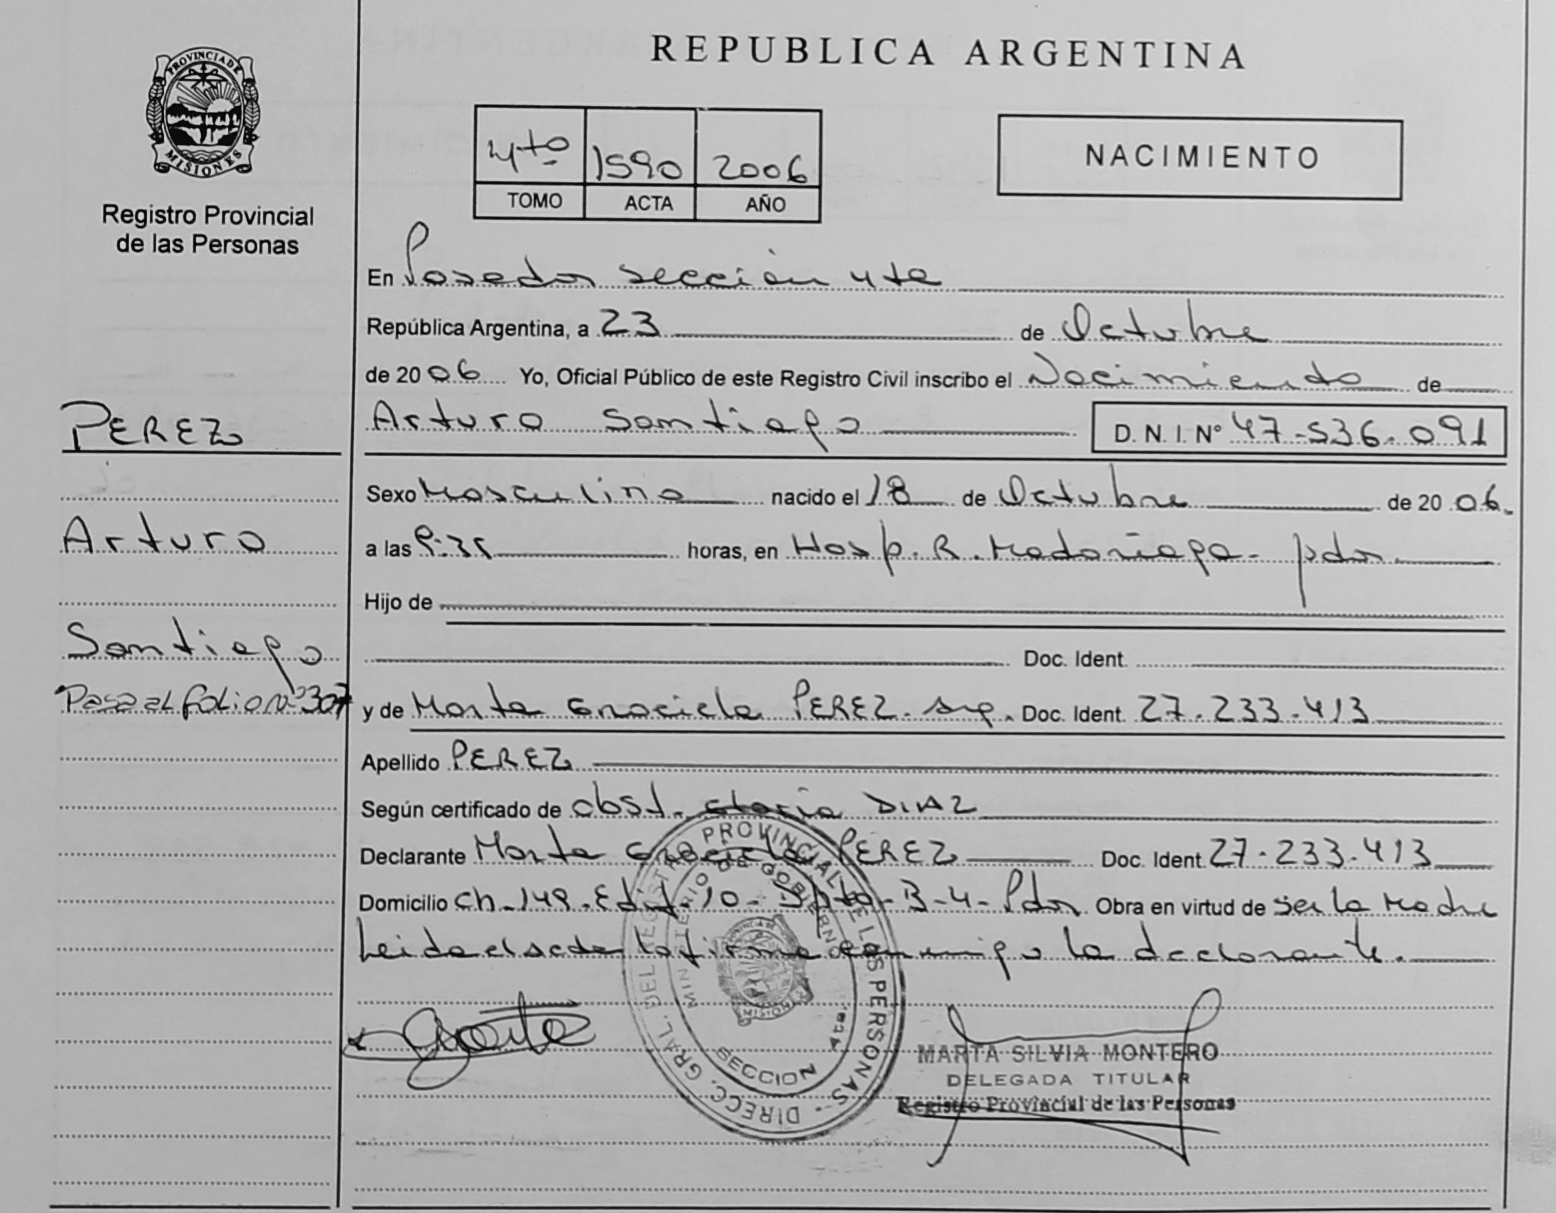 REPUBLICA ARGENTINA
PROVINCIA DE
MISIONES
Registro Provincial
de las Personas
4to 1590 2006
TOMO ACTA AÑO
NACIMIENTO
En Posadas sección 4ta
República Argentina, a 23 de Octubre
de 2006 Yo, Oficial Público de este Registro Civil inscribo el Nacimiento de
Arturo Santiago D. N. I. N° 47-536.091
Sexo Masculino nacido el 18 de Octubre de 2006.
a las 9:35 horas, en Hosp. R. Madariaga - pdas.
Hijo de
Doc. Ident.
y de Marta Graciela PEREZ. arg. Doc. Ident. 27.233.413
Apellido PEREZ
Según certificado de obst. Gloria DIAZ
Declarante Marta Graciela PEREZ Doc. Ident 27.233.413
Domicilio Ch-149-Edif-10-Dpto-B-4-Pdas Obra en virtud de ser la Madre
Leida el acta la firma conmigo la declarante.
PEREZ
Arturo
Santiago
Pasa al folio nº 307
DIRECC. GRAL. DEL REGISTRO PROVINCIAL DE LAS PERSONAS
MINISTERIO DE GOBIERNO
SECCION 4ta.
MISIONES
MARTA SILVIA MONTERO
DELEGADA TITULAR
Registro Provincial de las Personas